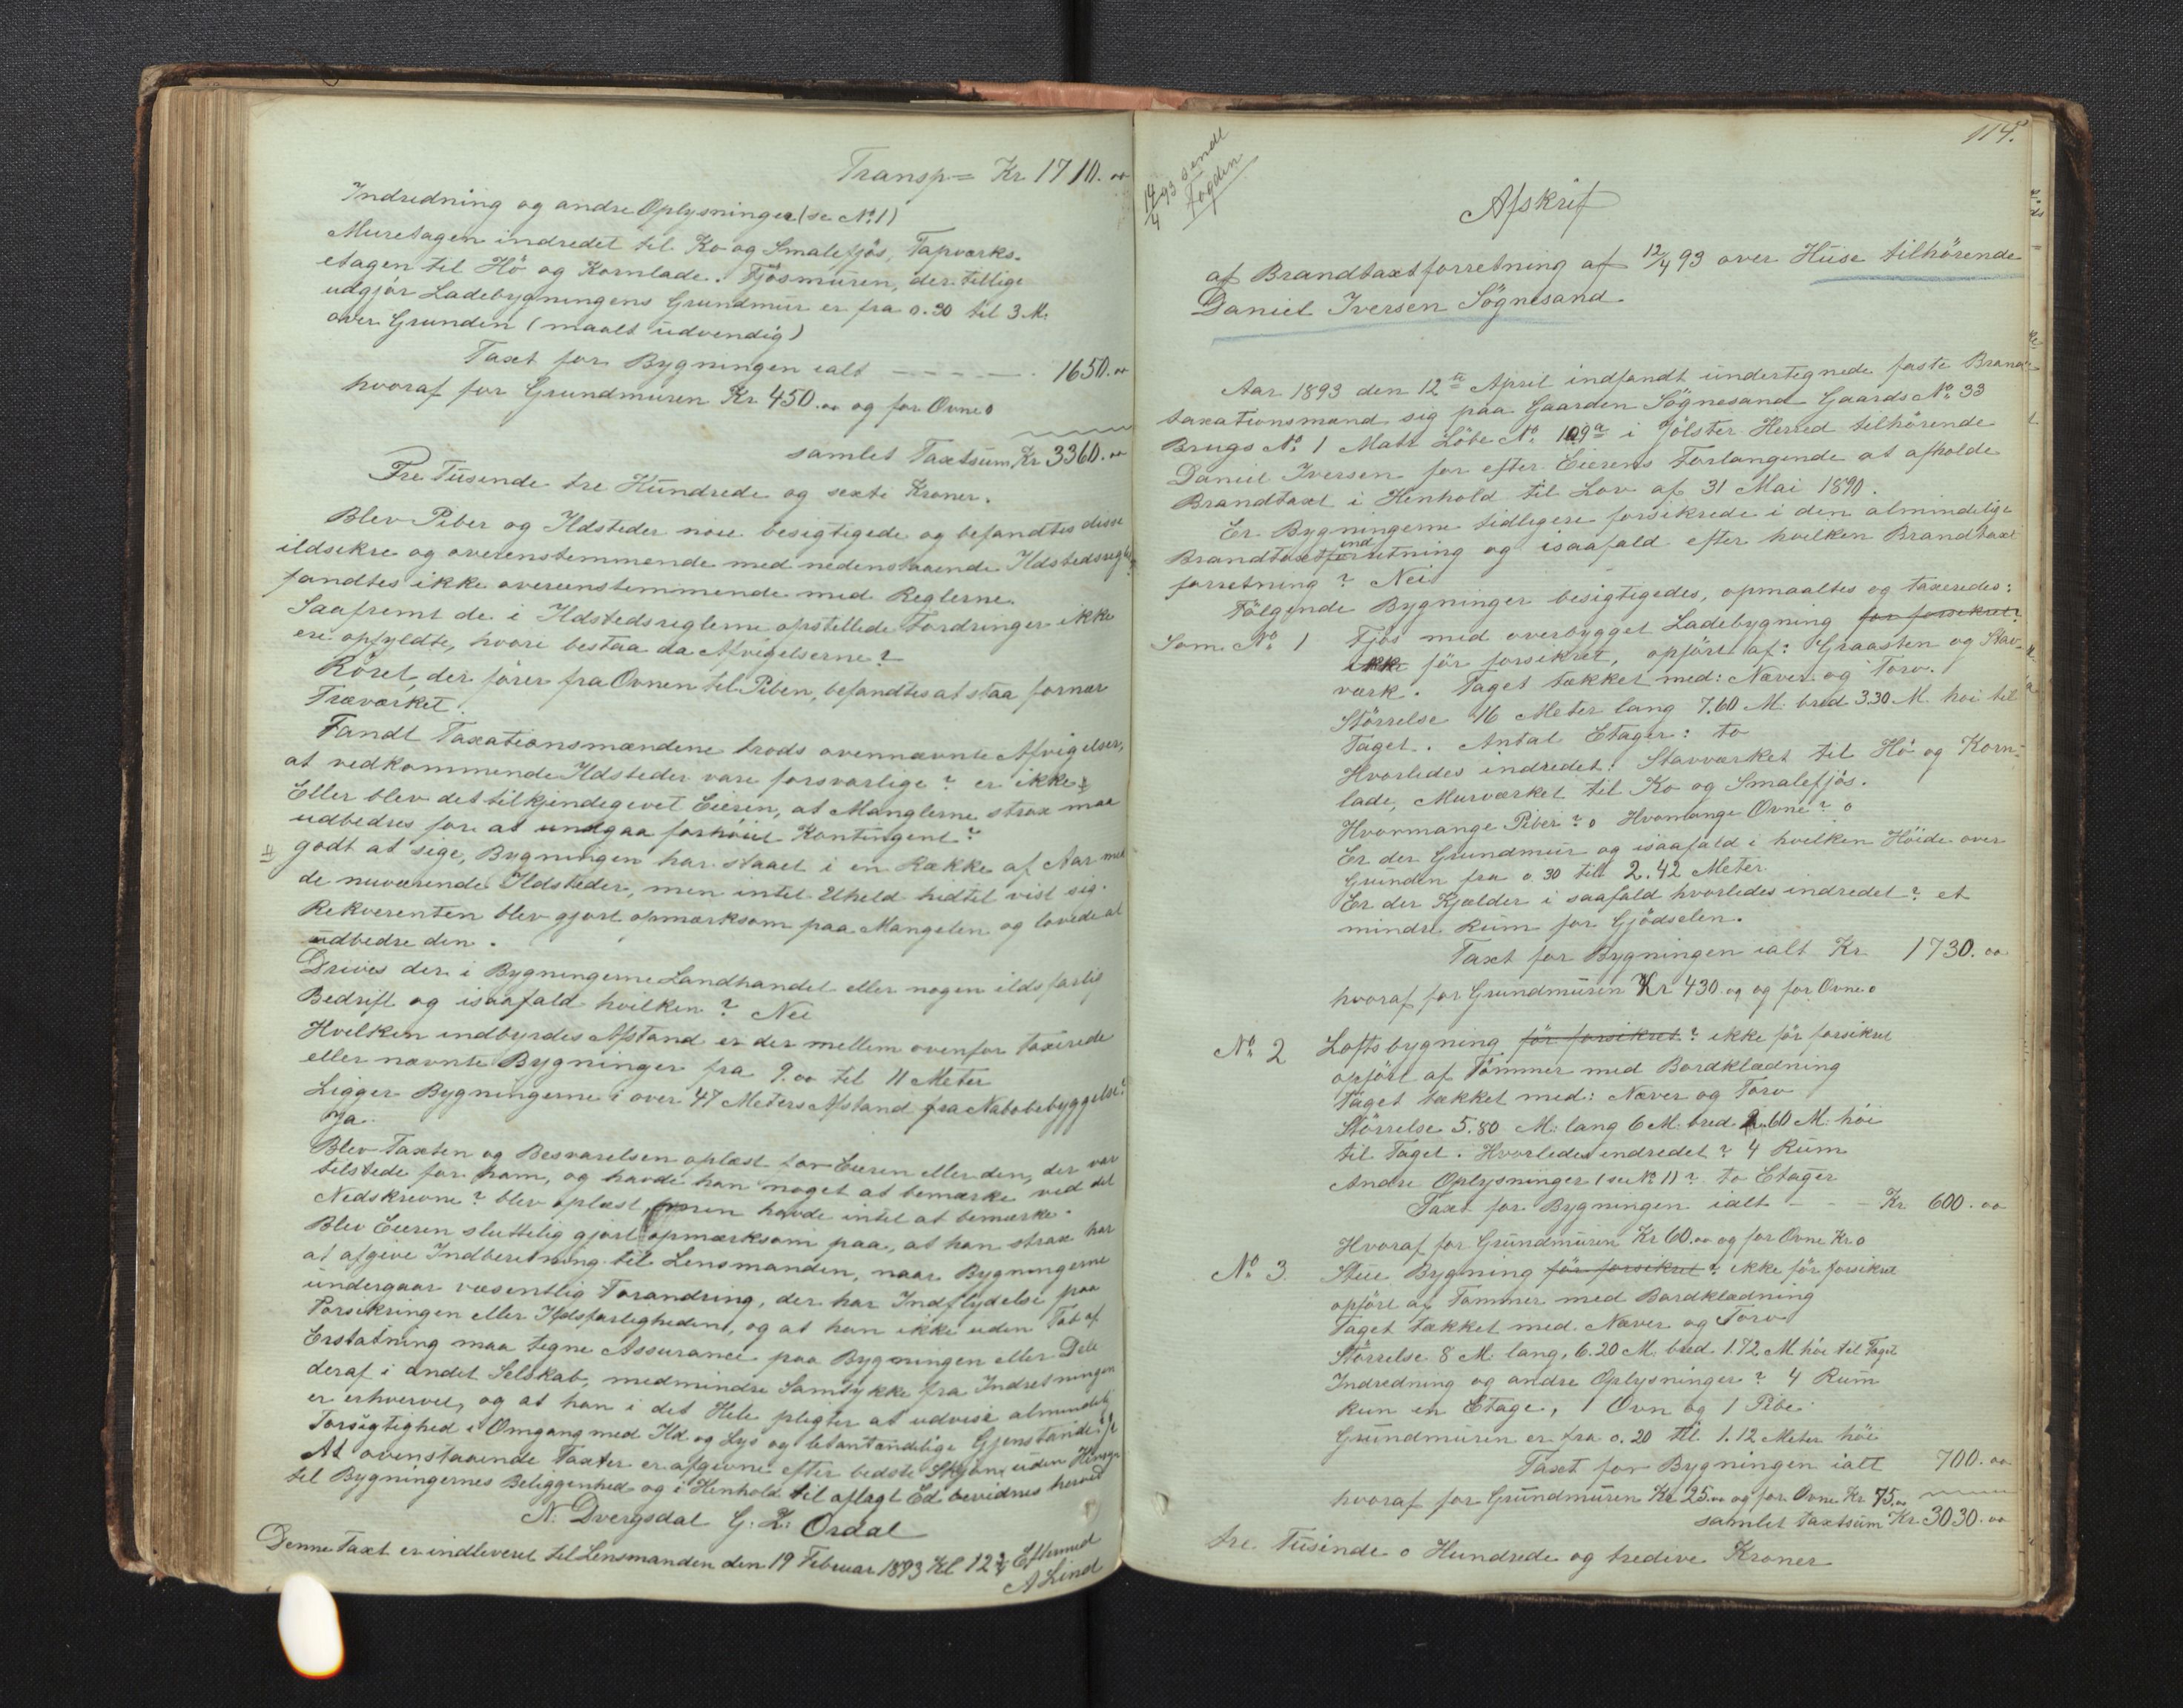 Transp = Kr 1710.00
Indredning og andre Oplysninger (se No 1)
Muretagen indredet til Ko og Smalefjös, Tapværks-
etagen til Hö og Kornlade. Fjösmuren, der tillige
udgjör Ladebygningens Grundmur er fra 0.30 til 3 M:
over Grunden (maalt udvendig)
Taxt for Bygningen ialt - - - - - 1650.00
hvoraf for Grundmuren Kr 450.00 og for Ovne 0
samlet Taxtsum Kr 3360.00
Tre Tusende tre Hundrede og sexti Kroner.
Blev Piber og Ildsteder nöie besigtigede og befandtes disse
ildsikre og overenstemmende med nedenstaaende Ildstedsregler?
fandtes ikke overeenstemmende med Reglerne.
Saafremt de i Ildstedsreglerne opstillede Fordringer ikke
ere opfyldte, hvori bestaa da Afvigelserne?
Röret, der förer fra Ovnen til Piben, befandtes at staa fornær
Træværket.
Fandt Taxationsmændene trods ovennævnte Afvigelser,
at vedkommende Ildsteder vare forsvarlige? er ikke #
Eller blev det tilkjendegivet Eieren, at Manglerne strax maa
udbedres for at undgaa forhöiet Kontingent?
# godt at sige, Bygningen har staaet i en Række af Aar med
de nuværende Ildsteder, men intet Uheld hidtil vist sig.
Rekvirenten blev gjort opmærksom paa Mangelen og lovede at
udbedre den.
Drives der i Bygningerne Landhandel eller nogen ildsfarlig
Bedrift og isaafald hvilken? Nei
Hvilken indbyrdes Afstand er der mellem ovenfor taxerede
eller nævnte Bygninger fra 9.00 til 11 Meter
Ligger Bygningerne i over 47 Meters Afstand fra Nabobebyggelse?
Ja.
Blev Taxten og Besvarelsen oplæst for Eieren eller den, der var
tilstede for ham, og havde han noget at bemærke ved det
Nedskrevne? blev oplæst, men havde intet at bemærke.
Blev Eieren sluttelig gjort opmærksom paa, at han strax har
at afgive Indberetning til Lensmanden, naar Bygningerne
undergaar væsentlig Forandring, der har Indflydelse paa
Forsikringen eller Ildsfarligheden, og at han ikke uden Tab af
Erstatning maa tegne Assurance paa Bygningen eller Dele
deraf i andet Selskab, medmindre Samtykke fra Indretningen
er erhvervet, og at han i det Hele pligter at udvise almindelig
Forsigtighed i Omgang med Ild og Lys og letantændelige Gjenstande? Ja
At ovenstaaende Taxter er afgivne efter bedste Skjön, uden Hensyn
til Bygningernes Beliggenhed og i Henhold til aflagt Ed bevidnes herved
N. Dvergsdal G. L: Ordal
Denne Taxt er indleveret til Lensmanden den 19 Februar 1893 Kl 12 3/4 Eftermed
A Lind
114.
14/4 93 sendt
Fogden
Afskrif
af Brandtaxtforretning af 12/4 93 over Huse tilhörende
Daniel Iversen Sögnesand.
Aar 1893 den 12te April indfandt undertegnede faste Brand-
taxationsmænd sig paa Gaarden Sögnesand Gaards No 33
Brugs No 1 Matr Löbe No 109a i Jölster Herred tilhörende
Daniel Iversen for efter Eierens Forlangende at afholde
Brandtaxt i Henhold til Lov af 31 Mai 1890.
Er Bygningerne tidligere forsikrede i den almindelige
Brandtaxtforretning ind og isaafald efter hvilken Brandtaxt
forretning? Nei
Fölgende Bygninger besigtigedes, opmaaltes og taxeredes:
Som No 1 Fjös med overbygget Ladebygning för forsikret?
ikke för forsikret, opfört af: Graasten og Stav-
værk. Taget tækket med: Næver og Torv.
Störrelse 16 Meter lang 7.60 M: bred 3.30 M. höi til
Taget. Antal Etager: to
Hvorledes indredet? Stavværket til Hö og Korn-
lade, Murværket til Ko og Smalefjös.
Hvormange Piber? 0 Hvormange Ovne? 0
Er der Grundmur og isaafald i hvilken Höide over
Grunden fra 0.30 till 2.42 Meter
Er der Kjælder i saafald hvorledes indredet? et
mindre Rum for Gjödselen.
Taxt for Bygningen ialt Kr 1730.00
hvoraf for Grundmuren Kr 430.00 og for Ovne 0
No 2 Loftsbygning för forsikret? ikke för forsikret
opfört af Tömmer med Bordklædning
Taget tækket med: Næver og Torv
Störrelse 5.80 M: lang 6 M. bred .60 M: höi
til Taget. Hvorledes indredet? 4 Rum
Andre Oplysninger (se No 1)? to Etager
Taxt for Bygningen ialt - - - Kr 600.00
Hvoraf for Grundmuren Kr 60.00 og for Ovne Kr 0
No 3 Stue Bygning för forsikret? ikke för forsikret
opfört af Tømmer med Bordklædning
Taget tækket med Næver og Torv
Störrelse 8 M: lang, 6.20 M. bred 1.72 M höi til Taget
Indredning og andre Oplysninger? 4 Rum
Kun en Etage, 1 Ovn og 1 Pibe.
Grundmuren er fra 0.20 til 1.12 Meter höi
Taxt for Bygningen ialt 700.00
hvoraf for Grundmuren Kr 25.00 og for Ovne Kr 75.00
samlet taxtsum Kr. 3030.00
tre Tusinde 0 Hundrede og tredive Kroner